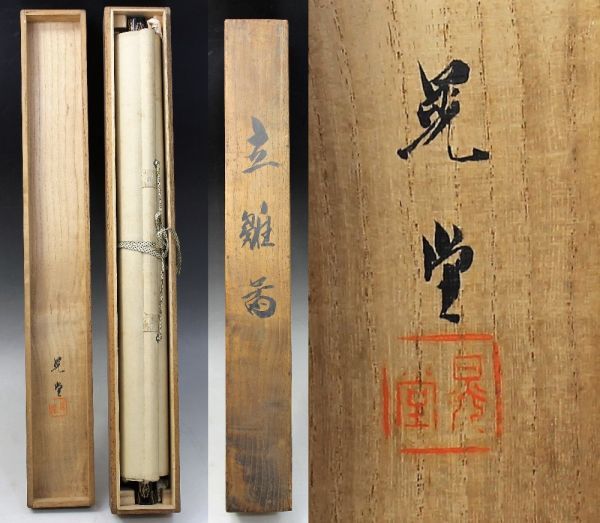 晃堂
立雛图
晃堂
晃堂